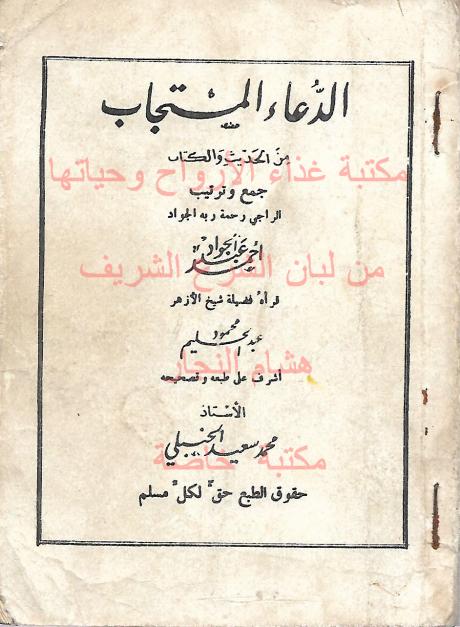 الدُّعاء المستجاب
مِنَ الحَديثِ وَالكتاب
مكتبة غذاء الأرواح وحياتها
جمع وترتيب
الراجي رحمة ربه الجواد
احمد عبد الجواد
من لبان الشرع الشريف
قرأه فضيلة شيخ الأزهر
عبد الحليم محمود
هشام النجار
أشرف على طبعه وتصحيحه
الأستاذ
محمد سعيد الحنبلي
مكتبة خاصة
حقوق الطبع حقٌ لكلِّ مسلم